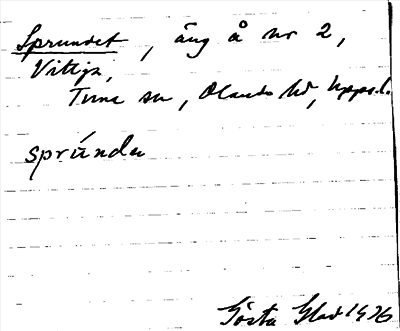 Sprundet, äng å nr 2,
Vittja,
Tuna sn, Olands hd, Upps. l.
sprúndä
Gösta Glad 1926